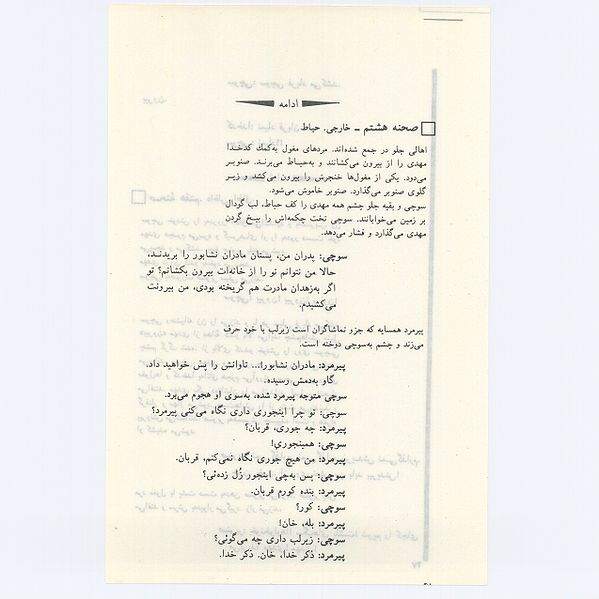 ادامه
صحنه هشتم - خارجی. حیاط
اهالی جلو در جمع شده‌اند. مردهای مغول به‌کمك کدخـدا
مهدی را از بیرون می‌کشانند و به‌حیـاط می‌برنـد. صنوبـر
می‌دود. یکی از مغول‌ها خنجرش را بیرون می‌کشد و زیـر
گلوی صنوبر می‌گذارد. صنوبر خاموش می‌شود.
سوچی و بقیه جلو چشم همه مهدی را کف حیاط، لب گودال
بر زمین می‌خوابانند. سوچی تخت چکمه‌اش را بیـخ گردن
مهدی می‌گذارد و فشار می‌دهد.
سوچی: پدران من، پستان مادران نشابور را بریدنـد،
حالا من نتوانم تو را از خانه‌ات بیرون بکشانم؟ تو
اگر به‌زهدان مادرت هم گریخته بودی، من بیرونت
می‌کشیدم.
پیرمرد همسایه که جزو تماشاگران است زیرلب با خود حرف
می‌زند و چشم به‌سوچی دوخته است.
پیرمرد: مادران نشابور!... تاوانش را پش خواهید داد.
گاو به‌دمش رسیده.
سوچی متوجه پیرمرد شده، به‌سوی او هجوم می‌برد.
سوچی: تو چرا اینجوری داری نگاه می‌کنی پیرمرد؟
پیرمرد: چه جوری، قربان؟
سوچی: همینجوری!
پیرمرد: من هیچ جوری نگاه نمی‌کنم، قربان.
سوچی: پس به‌چی اینجور زُل زده‌ئی؟
پیرمرد: بنده کورم قربان.
سوچی: کور؟
پیرمرد: بله، خان!
سوچی: زیرلب داری چه می‌گوئی؟
پیرمرد: ذکر خدا، خان. ذکر خدا.